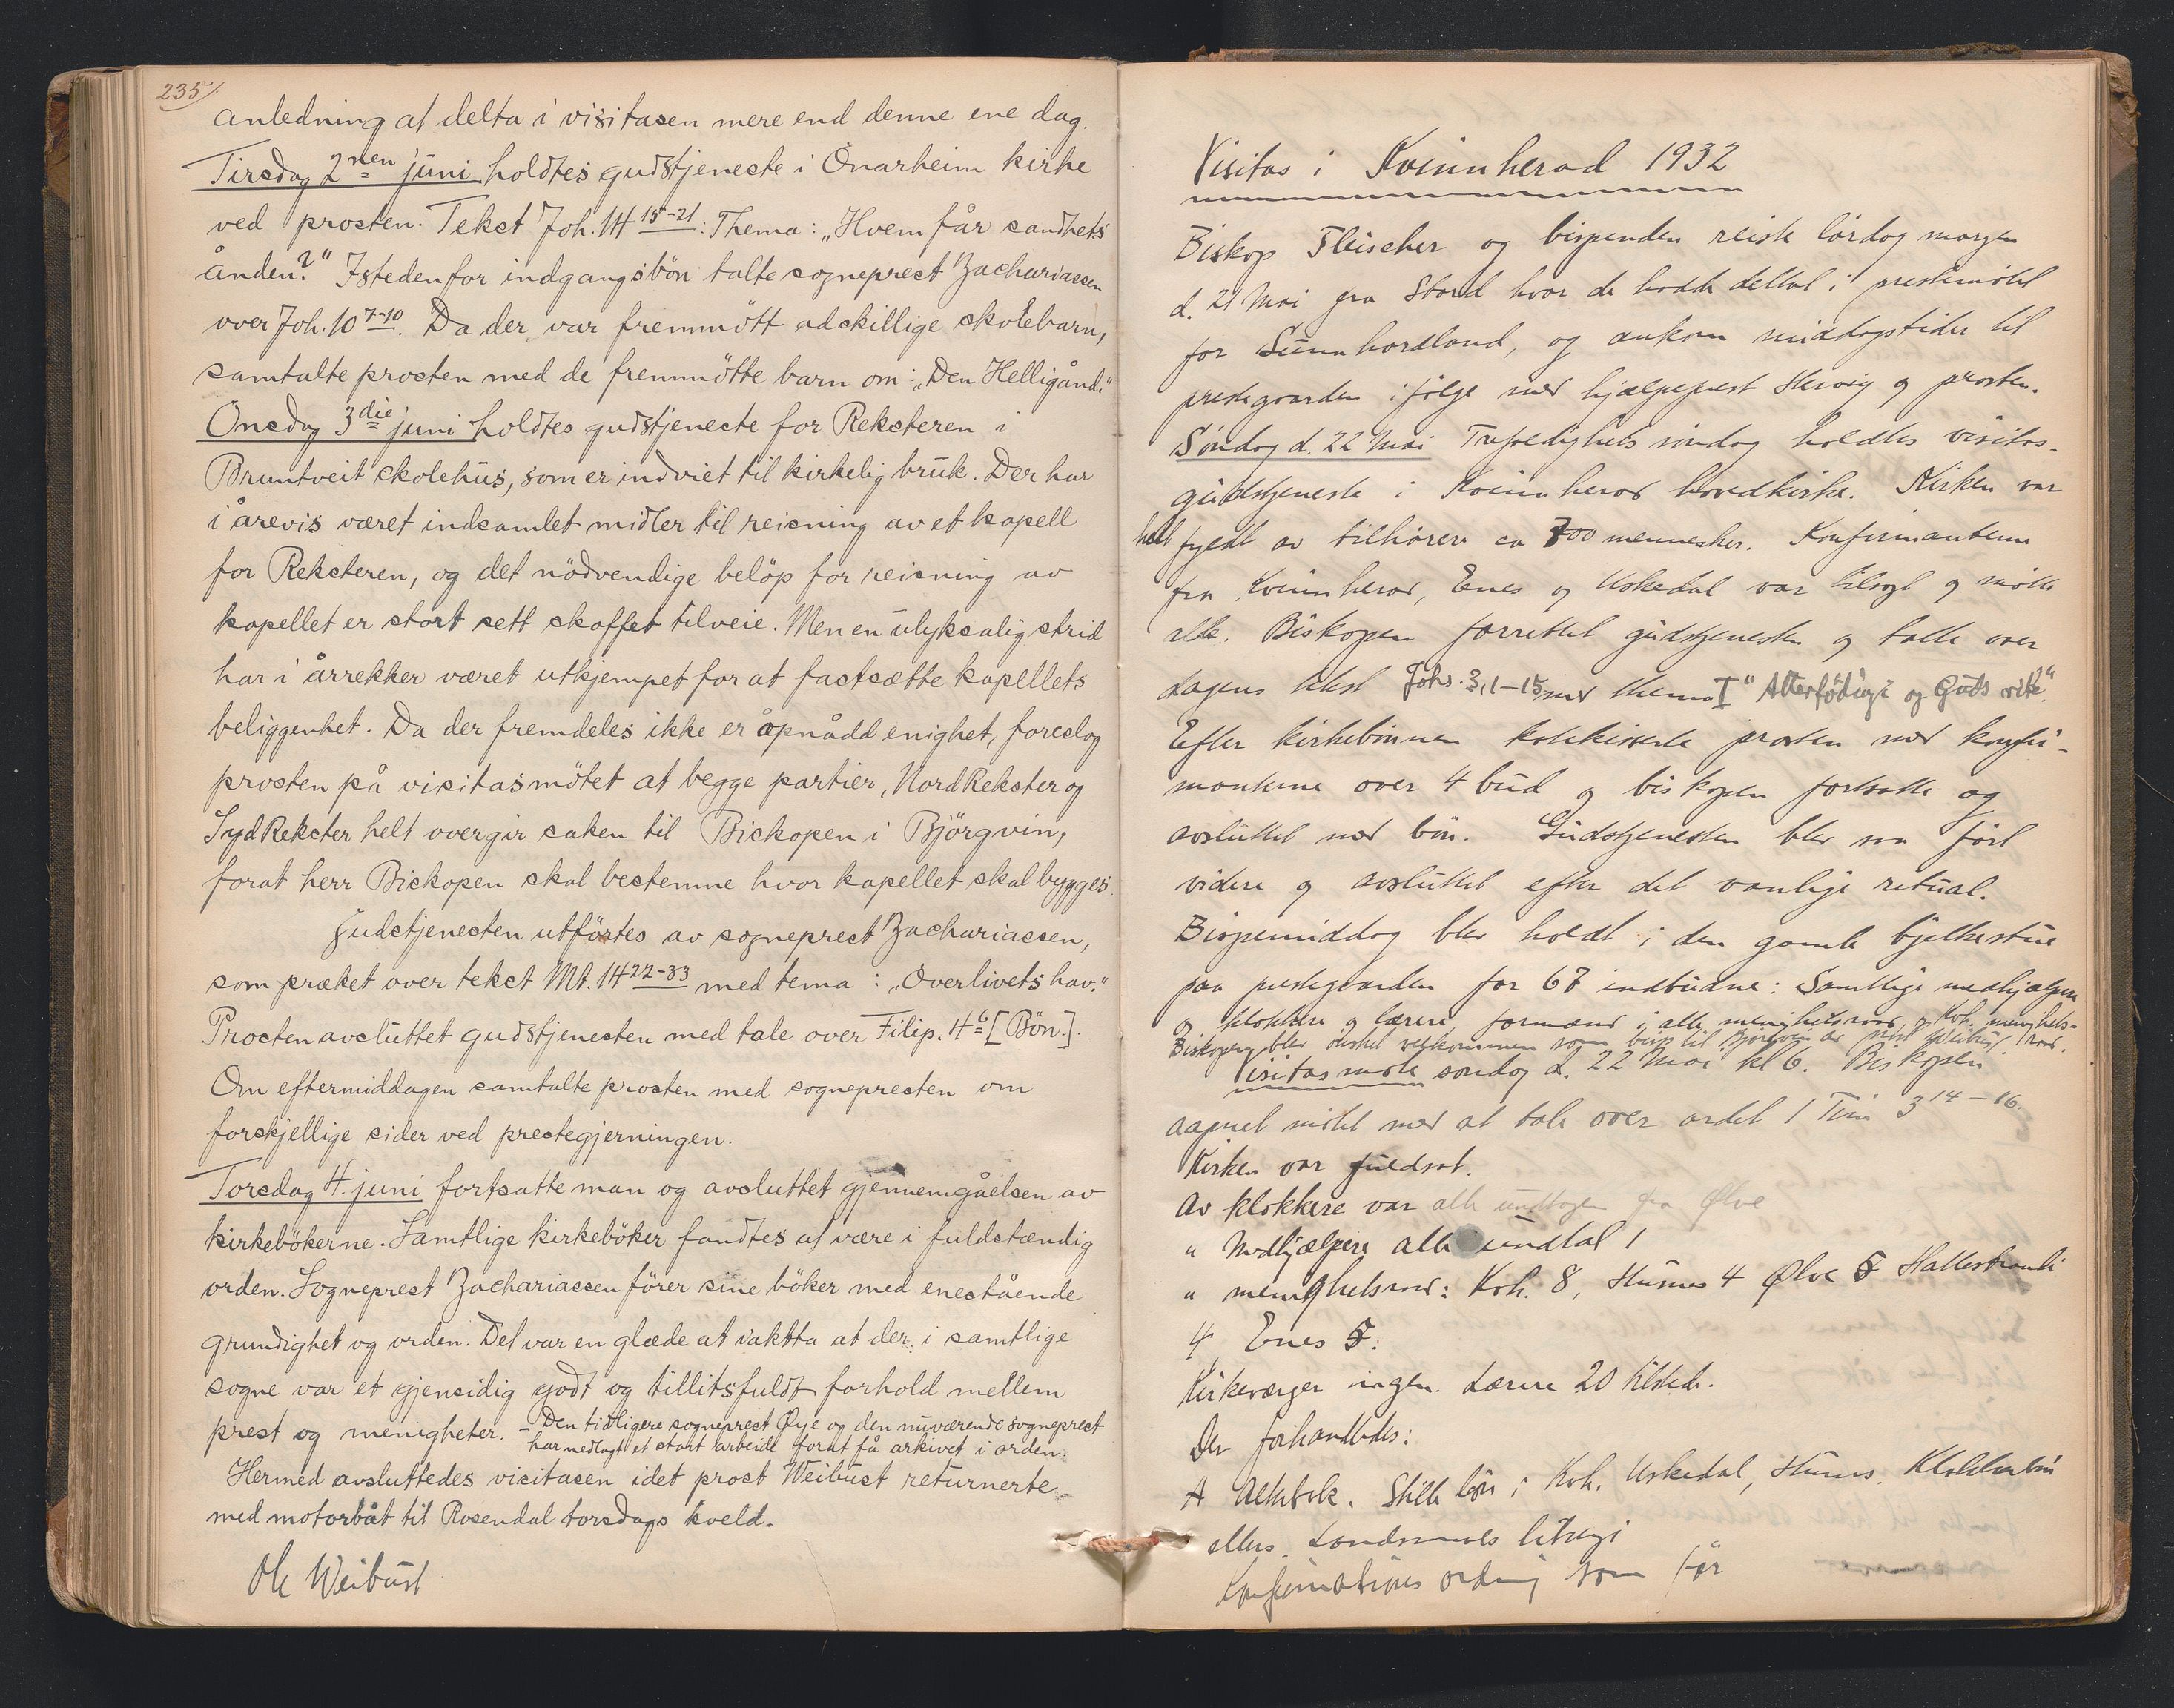 235/.
anledning at delta i visitasen mere end denne ene dag.
Tirsdag 2nen juni holdtes gudstjeneste i Onarheim kirke
ved prosten. Tekst Joh. 14 15-21: Thema: „Hvem får sandhets
ånden?“ Istedenfor indgangsbön talte sogneprest Zachariassen
over Joh. 10 7-10. Da der var fremmött adskillige skolebarn,
samtalte prosten med de fremmötte barn om: „Den Helligånd.“
Onsdag 3die juni holdtes gudstjeneste for Reksteren i
Bruntveit skolehus, som er indviet til kirkelig bruk. Der har
i årevis været indsamlet midler til reisning av et kapell
for Reksteren, og det nödvendige belöp for reisning av
kapellet er stort sett skaffet tilveie. Men en ulyksalig strid
har i årrekker været utkjempet for at fastsætte kapellets
beliggenhet. Da der fremdeles ikke er opnådd enighet, foreslog
prosten på visitasmötet at begge partier, Nord Rekster og
Syd Rekster helt overgir saken til Biskopen i Björgvin,
forat herr Biskopen skal bestemme hvor kapellet skal bygges.
Gudstjenesten utförtes av sogneprest Zachariassen,
som præket over tekst Mt. 14 22-33 med tema: „Over livets hav.“
Prosten avsluttet gudstjenesten med tale over Filip. 4 6 [Bön.].
Om eftermiddagen samtalte prosten med sognepresten om
forskjellige sider ved prestegjerningen.
Torsdag 4. juni fortsatte man og avsluttet gjennemgåelsen av
kirkebökerne. Samtlige kirkeböker fandtes at være i fuldstændig
orden. Sogneprest Zachariassen förer sine böker med enestående
grundighet og orden. Det var en glæde at iaktta at der i samtlige
sogne var et gjensidig godt og tillitsfuldt forhold mellem
prest og menigheter. – Den tidligere sogneprest Øye og den nuværende sogneprest
har nedlagt et stort arbeide forat få arkivet i orden.
Hermed avsluttedes visitasen idet prost Weibust returnerte
med motorbåt til Rosendal torsdags kveld.
Weibust
Visitas i Kvinnherad 1932
Biskop Fleischer og bispinden reiste lördag morgen
d. 21 Mai fra Stord hvor de hadde deltat i prestemötet
for Sunnhordland, og ankom middagstider til
prestegaarden ifölge med hjælpeprest Hervig og prosten.
Söndag d. 22 Mai Trefoldighets söndag holdtes visitas-
gudstjeneste i Kvinnherad hovedkirke. Kirken var
helt fyldt av tilhörere ca 700 mennesker. Konfirmanterne
fra Kvinnherad, Enes og Uskedal var tilsagt og mötte
alle. Biskopen forrettet gudstjenesten og talte over
dagens tekst Johs. 3, 1-15 med thema I "Atterföding og Guds rike".
Efter kirkebönnen katekiserte prosten med konfir-
manterne over 4 bud og biskopen fortsatte og
avsluttet med bön. Gudstjenesten blev saa fört
videre og avsluttet efter det vanlige ritual.
Bispemiddag blev holdt i den gamle bjelkestue
paa prestegaarden for 67 indbudne: Samtlige medhjælpere
og klokkere og lærere, formænd i alle menighetsraad og Kvh. menighets-
raad. Biskopen blev önsket velkommen som bisp til Björgvin av prost Weibust.
Visitasmöte söndag d. 22 Mai kl 6. Biskopen
aapnet mötet med at tale over ordet 1 Tim 3 14-16.
Kirken var fuldsat.
Av klokkere var alle undtagen fra Ølve
" Medhjælpere alle undtat 1
" menighetsraad: Kvh. 8, Husnes 4 Ølve 5 Hattestrand
4 Enes 5:
Kirkeværger ingen. Lærere 20 tilstede.
Der forhandledes:
A Alterbok. Stille bön i Kvh. Uskedal, Husnes. Klokkerbön
ellers. Landsmaals liturgi
Konfirmations ordning som för